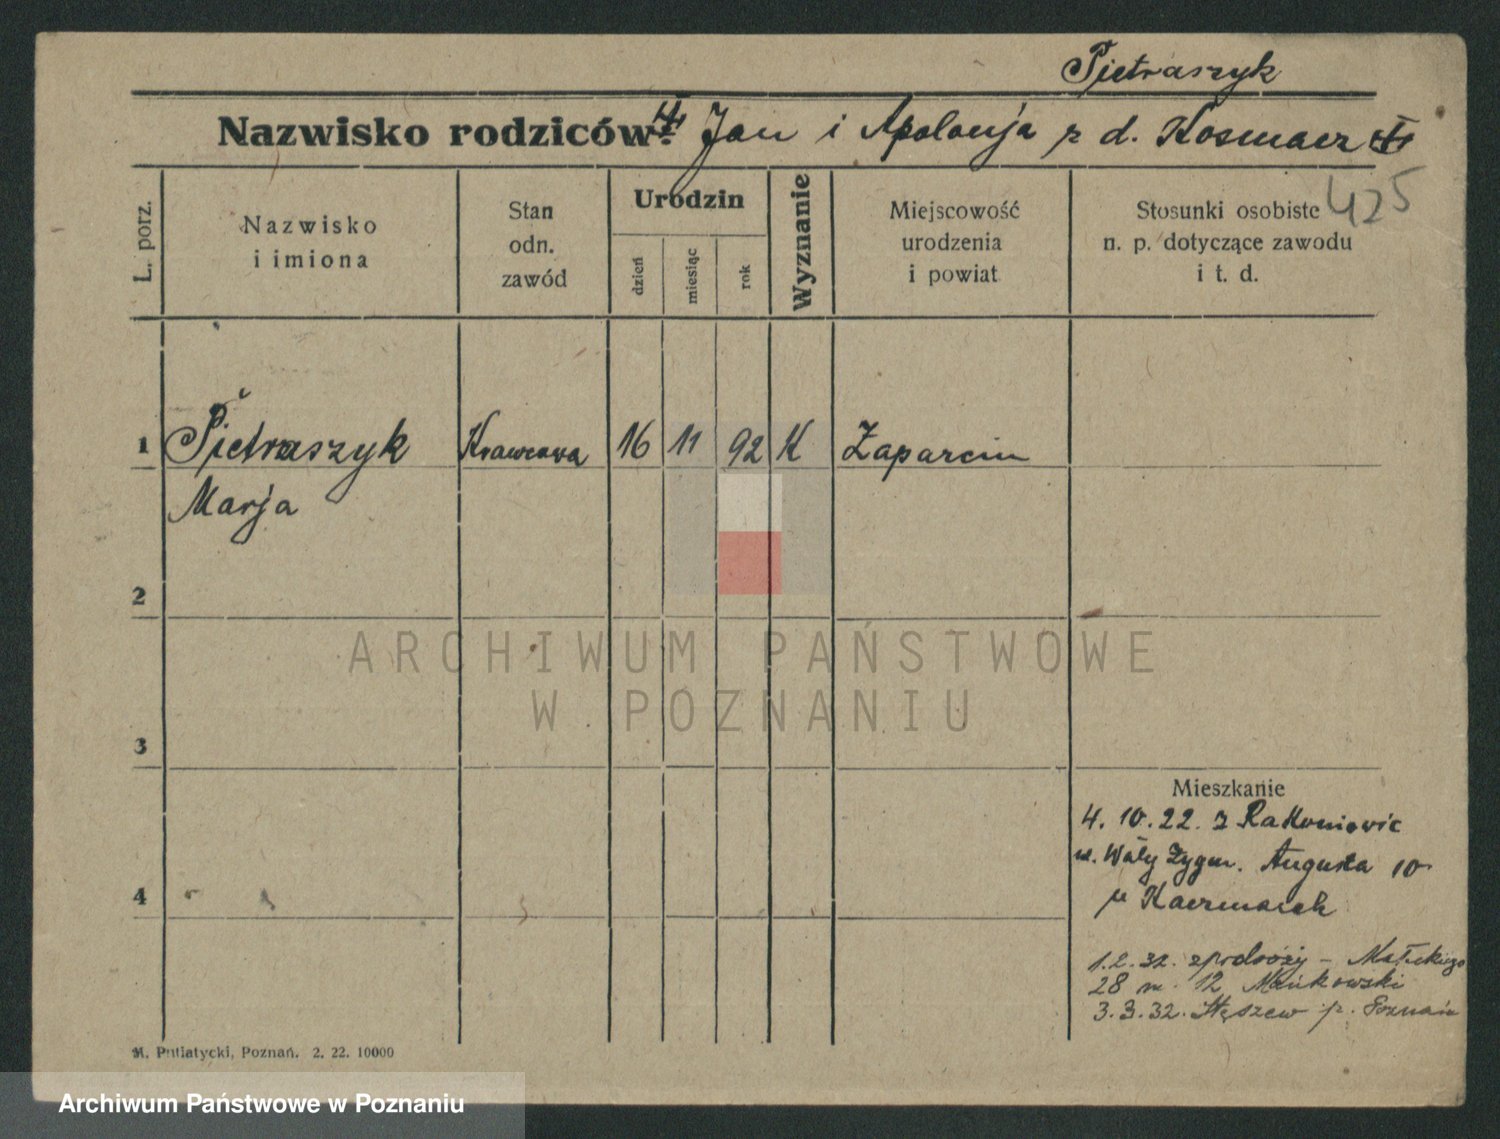 Pietraszyk
Nazwisko rodziców: Jan i Apolonja z d. Kosmacz
425
L. porz.
Nazwisko
i imiona
Stan
odn.
zawód
Urodzin
dzień
miesiąc
rok
Wyznanie
Miejscowość
urodzenia
i powiat
Stosunki osobiste
n. p. dotyczące zawodu
i t. d.
1 Pietraszyk Krawcowa 16 11 92 K Zaparcin
Marja
2
3
4
ARCHIWUM PAŃSTWOWE
W POZNANIU
Mieszkanie
4. 10. 22. z Rakoniewic
Wały Zygm. Augusta 10
Kaczmarek
1.2.32. z podróży – Małeckiego
28 m. 12 Mańkowski
3.3.32. Stęszew p. Poznań
M. Putiatycki, Poznań. 2. 22. 10000
Archiwum Państwowe w Poznaniu